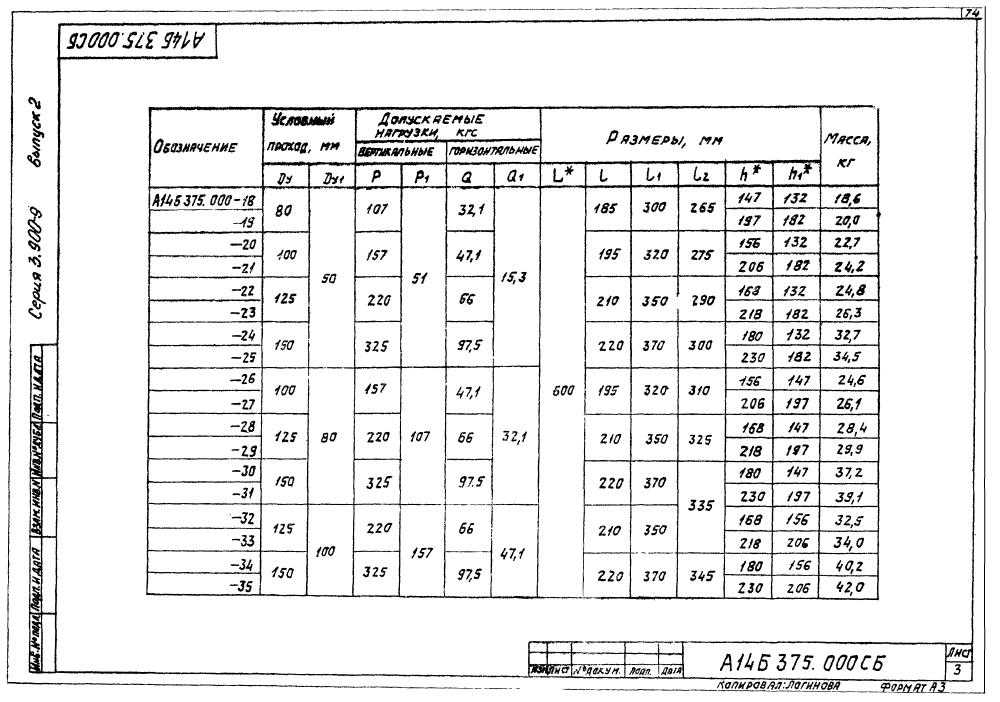 74
А14Б 375.000СБ
Серия 3.900-9 Выпуск 2
Обозначение
Условный проход, мм
Допускаемые нагрузки, кгс
вертикальные
горизонтальные
Размеры, мм
Масса, кг
Dу Dу1 P P1 Q Q1 L* l l1 l2 h* h1*
А14Б 375.000-18 80 50 107 51 32,1 15,3 600 185 300 265 147 132 18,6
-19 197 182 20,0
-20 100 157 47,1 195 320 275 156 132 22,7
-21 206 182 24,2
-22 125 220 66 210 350 290 168 132 24,8
-23 218 182 26,3
-24 150 325 97,5 220 370 300 180 132 32,7
-25 230 182 34,5
-26 100 80 157 107 47,1 32,1 195 320 310 156 147 24,6
-27 206 197 26,1
-28 125 220 66 210 350 325 168 147 28,4
-29 218 197 29,9
-30 150 325 97.5 220 370 335 180 147 37,2
-31 230 197 39,1
-32 125 100 220 157 66 47,1 210 350 168 156 32,5
-33 218 206 34,0
-34 150 325 97,5 220 370 345 180 156 40,2
-35 230 206 42,0
Инв.№ подл. Подп. и дата Взам.инв.№ Инв.№ дубл. Подп. и дата
Изм Лист № докум. Подп. Дата
А14Б 375.000СБ
Лист
3
Копировал: Логинова Формат А3